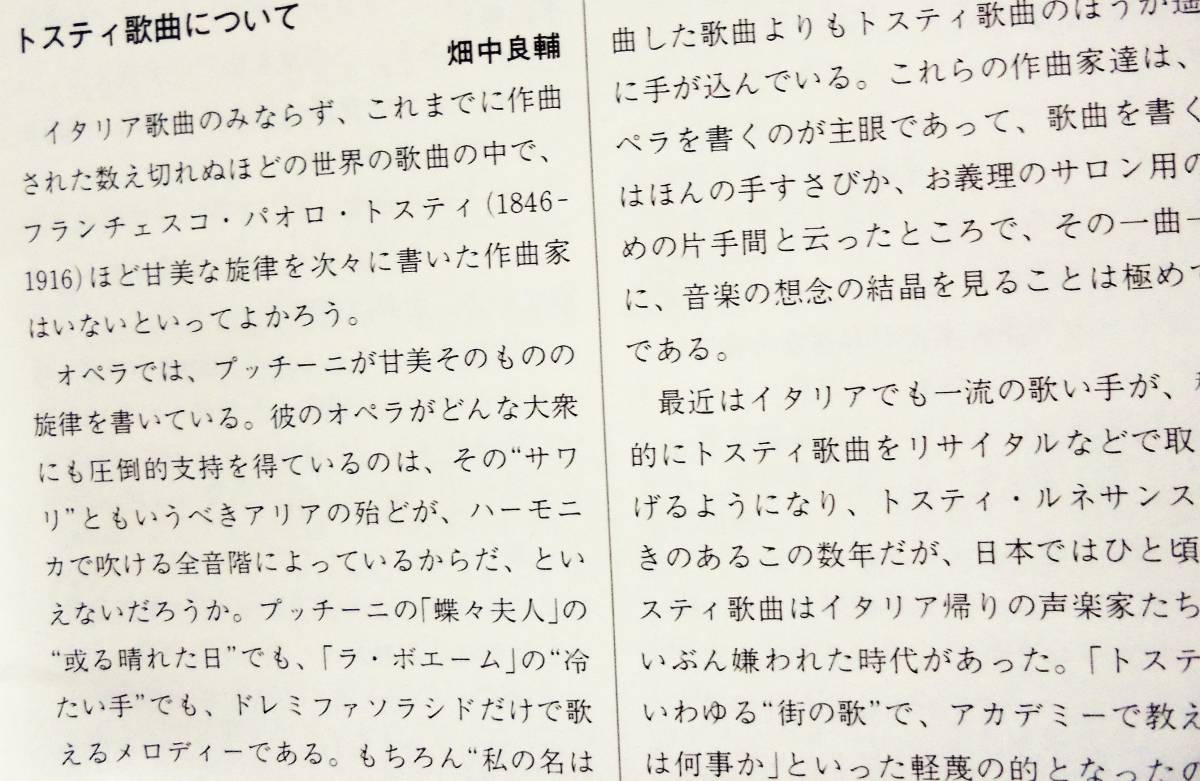 トスティ歌曲について
畑中良輔
イタリア歌曲のみならず、これまでに作曲
された数え切れぬほどの世界の歌曲の中で、
フランチェスコ・パオロ・トスティ(1846-
1916)ほど甘美な旋律を次々に書いた作曲家
はいないといってよかろう。
オペラでは、プッチーニが甘美そのものの
旋律を書いている。彼のオペラがどんな大衆
にも圧倒的支持を得ているのは、その“サワ
リ”ともいうべきアリアの殆どが、ハーモニ
カで吹ける全音階によっているからだ、とい
えないだろうか。プッチーニの「蝶々夫人」の
“或る晴れた日”でも、「ラ・ボエーム」の“冷
たい手”でも、ドレミファソラシドだけで歌
えるメロディーである。もちろん“私の名は
曲した歌曲よりもトスティ歌曲のほうが遥
に手が込んでいる。これらの作曲家達は、
ペラを書くのが主眼であって、歌曲を書く
はほんの手すさびか、お義理のサロン用の
めの片手間と云ったところで、その一曲一
に、音楽の想念の結晶を見ることは極めて
である。
最近はイタリアでも一流の歌い手が、
的にトスティ歌曲をリサイタルなどで取
げるようになり、トスティ・ルネサンス
きのあるこの数年だが、日本ではひと頃
スティ歌曲はイタリア帰りの声楽家たち
いぶん嫌われた時代があった。「トステ
いわゆる“街の歌”で、アカデミーで教え
は何事か」といった軽蔑の的となったの